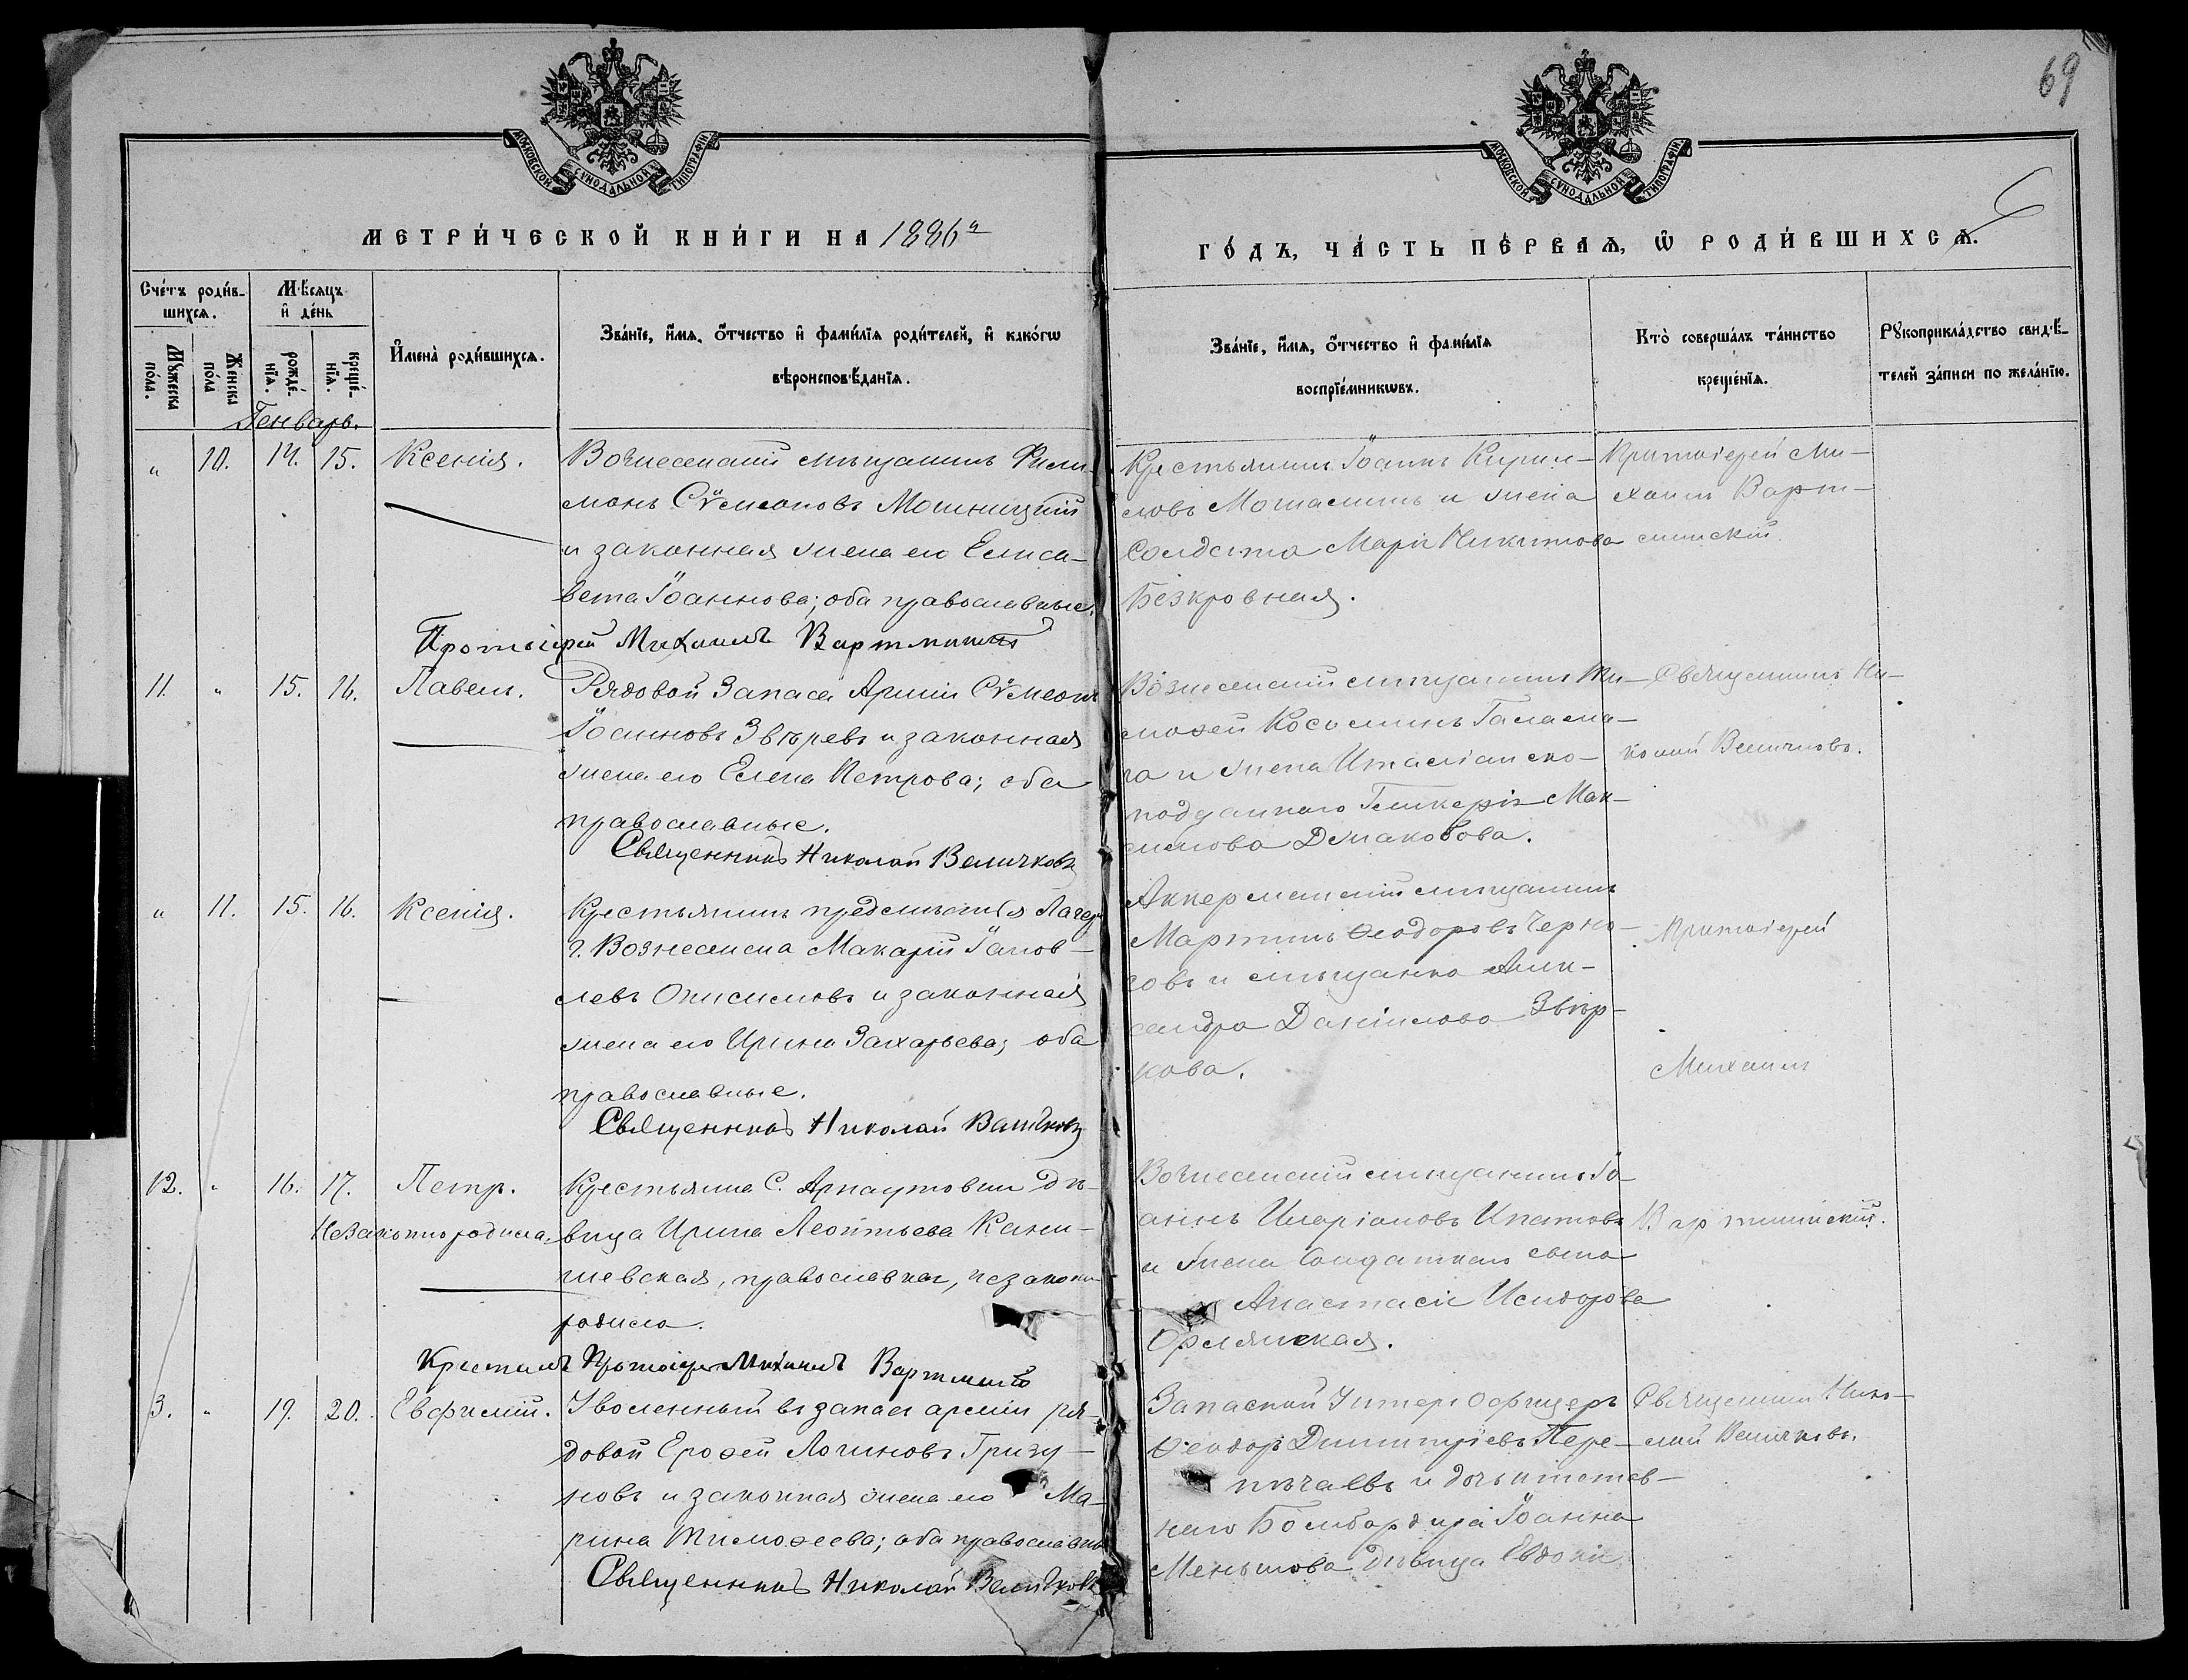 69
6
МОСКОВСКОЙ СѴНОДАЛЬНОЙ ТИПОГРАФІИ
МОСКОВСКОЙ СѴНОДАЛЬНОЙ ТИПОГРАФІИ
МЕТРИ́ЧЕСКОЙ КНИ́ГИ НА 1886й
ГО́ДЪ, ЧА́СТЬ ПЕ́РВАѦ, Ѽ РОДИ́ВШИХСѦ.
Сче́тъ роди́в-
шихсѧ.
Мѣ́сѧцъ
и҆ де́нь
Мꙋжеска
по́ла.
Женска
по́ла
рожде́-
нїѧ.
креще́-
нїѧ.
И҆мена̀ роди́вшихсѧ.
Зва́нїе, и҆́мѧ, ѻ҆́тчество и҆ фамѝлїѧ роди́телей, и҆ како́гѡ
вѣроисповѣ́данїѧ.
Зва́нїе, и҆́мѧ, ѻ҆́тчество и҆ фами́лїѧ
воспрїе́мникѡвъ.
Кто̀ соверша́лъ та́инство
креще́нїѧ.
Рꙋкоприкла́дство свидѣ́-
телей за́писи по жела́нїю.
Генварь.
" 10. 14. 15. Ксенія.
Вознесенскій мѣщанинъ Фили-
монъ Сѵмеоновъ Мошницкій
и законная жена его Елиса-
вета Іоаннова; оба православные.
Протоіерей Михаилъ
Крестьянинъ Іоаннъ Кирил-
ловъ и жена
Солдата Марія Никитова
Безкровная.
Протоіерей Ми-
хаилъ Варт-
минскій
11. " 15. 16. Павелъ.
Рядовой Запаса Арміи Сѵмеонъ
Іоанновъ Звѣревъ и законная
жена его Елена Петрова; оба
православные.
Священникъ Николай Величковъ
Вознесенскій мѣщанинъ Ти-
моѳей Косьминъ Галама-
га и жена Италіанско-
подданнаго Гликерія Мак-
симова
Священникъ Ни-
колай Величковъ.
" 11. 15. 16. Ксенія.
Крестьянинъ предмѣстья Лагерь
г. Вознесенска Макарій Іаков-
левъ Онисимовъ и законная
жена его Ирина Захарьева; оба
православные.
Священникъ Николай Величковъ
Аккерманскій мѣщанинъ
Мартинъ Ѳеодоровъ Черно-
ковъ и мѣщанка Алек-
сандра Даніилова Звѣр-
кова.
Протоіерей
Михаилъ
12. " 16. 17. Петръ.
Незаконнородила.
Крестьянка С. Арнаутовки дѣ-
вица Ирина Леонтьева
православная, незаконно
родила.
Крестилъ Протоіерей Михаилъ
Вознесенскій мѣщанинъ Іо-
аннъ Иларіоновъ Ипатовъ
и жена Солдатскаго сына
Анастасія Исидорова
Орлянская.
Вартминскій.
3. " 19. 20. Евфимій.
Уволенный въ запасъ арміи ря-
довой Ероѳей Логиновъ Гризу-
новъ и законная жена его Ма-
рина Тимоѳеева; оба православные
Священникъ Николай Величковъ
Запасный Унтеръ Офицеръ
Ѳеодоръ Димитріевъ Пере-
пѣчаевъ и дочь отстав-
наго Бомбардира Іоанна
Меньшова дѣвица Евдокія
Священникъ Нико-
лай Величковъ.